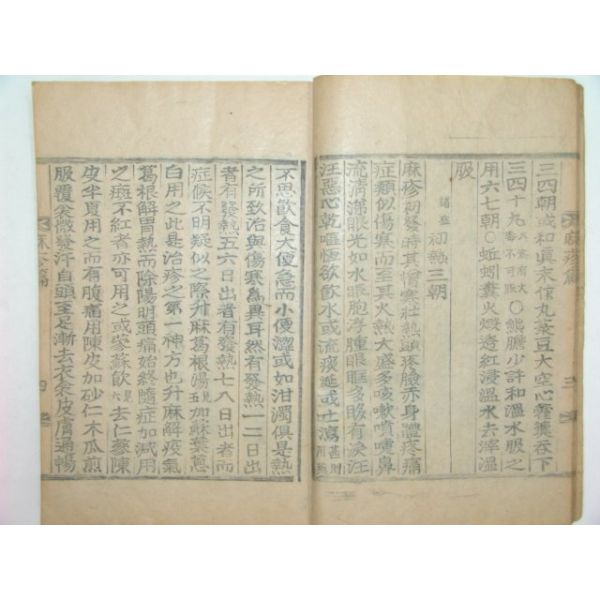 三四朝或和眞末作丸菉豆大空心難蘗呑下
三四十丸
不可〇熊膽少許和溫水服之
用六七朝〇蚯蚓糞火煅造紅浸溫水去滓溫
服
諸症 初熱三朝
麻疹初發時其憎寒壯熱頭疼臉赤身體疼痛
症類似傷寒而至其火熱大盛多咳嗽噴嚏鼻
流淸涕眼光如水眼胞浮腫眼眶多眵有淚汪
汪惡心乾嘔恒欲飮水或流痰涎或吐瀉甚則
不思飮食大便急而小便澀或如泔濁俱是熱
之所致治與傷寒爲異耳然有發熱一二日出
者有發熱五六日出者有發熱七八日出者而
症候不明疑似之際升麻葛根湯五加蘇葉葱
白用之此是治疹之第一神方也升麻解疫氣
葛根解胃熱而除陽明頭痛始終隨症加減用
之斑不紅者亦可用之或蔘蘇飮六去仁蔘陳
皮半夏用之而有腹痛用陳皮加砂仁木瓜煎
服覆衾微發汗自頭至足漸去衣衾皮膚通暢
麻疹篇
三
麻疹篇
四